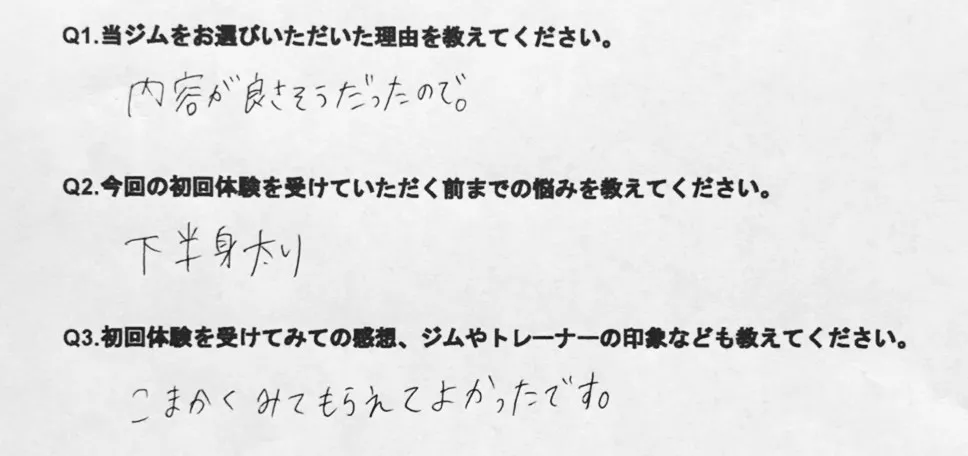 Q1.当ジムをお選びいただいた理由を教えてください。
内容が良さそうだったので。
Q2.今回の初回体験を受けていただく前までの悩みを教えてください。
下半身太り
Q3.初回体験を受けてみての感想、ジムやトレーナーの印象なども教えてください。
こまかくみてもらえてよかったです。